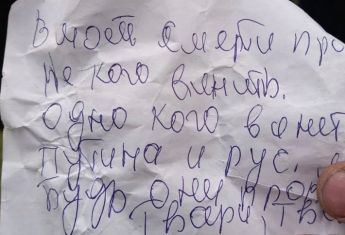 В моей смерти про
не кого винить.
Одно кого винет
Путина и рус.
Будь они про
Твари, Тв